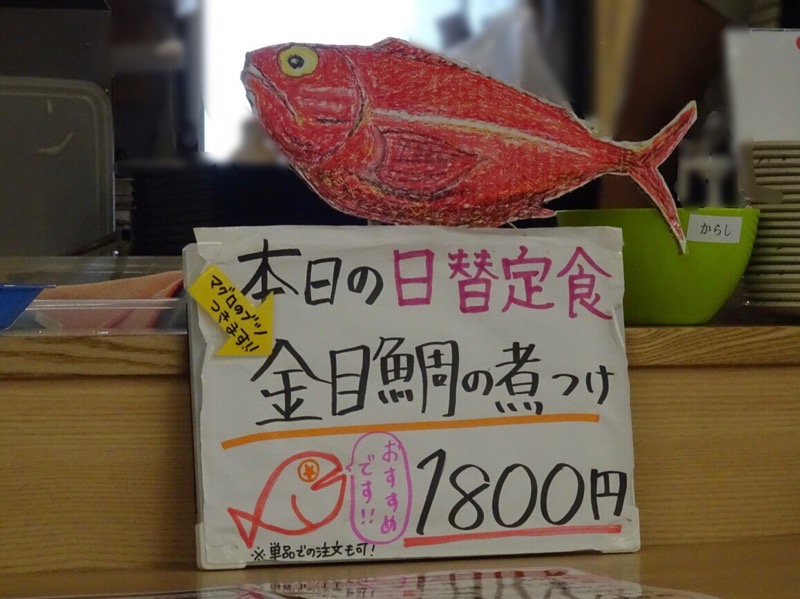 からし
本日の日替定食
マグロのブツ
つきます!!
金目鯛の煮つけ
おすすめ
です!!
1800円
※単品での注文も可!